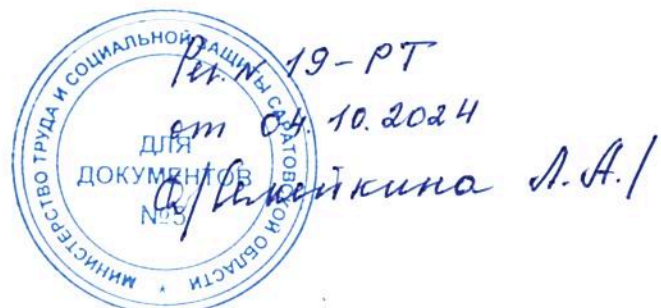 МИНИСТЕРСТВО ТРУДА И СОЦИАЛЬНОЙ ЗАЩИТЫ САРАТОВСКОЙ ОБЛАСТИ *
ДЛЯ
ДОКУМЕНТОВ
№3
Рег. № 19-РТ
от 04.10.2024
Л.А./